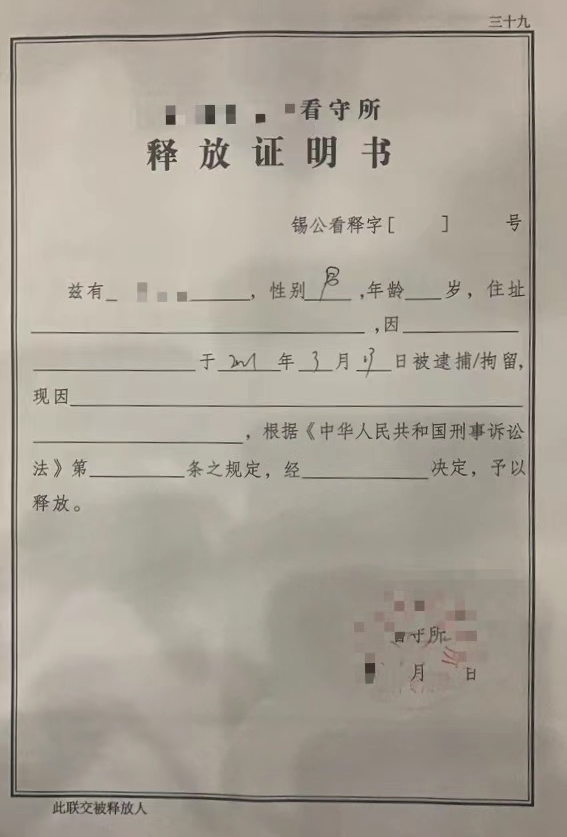 三十九
看守所
释放证明书
锡公看释字[ ] 号
兹有 ，性别男，年龄 岁，住址
，因
于 年3月 日被逮捕/拘留，
现因
，根据《中华人民共和国刑事诉讼
法》第 条之规定，经 决定，予以
释放。
看守所
月 日
此联交被释放人